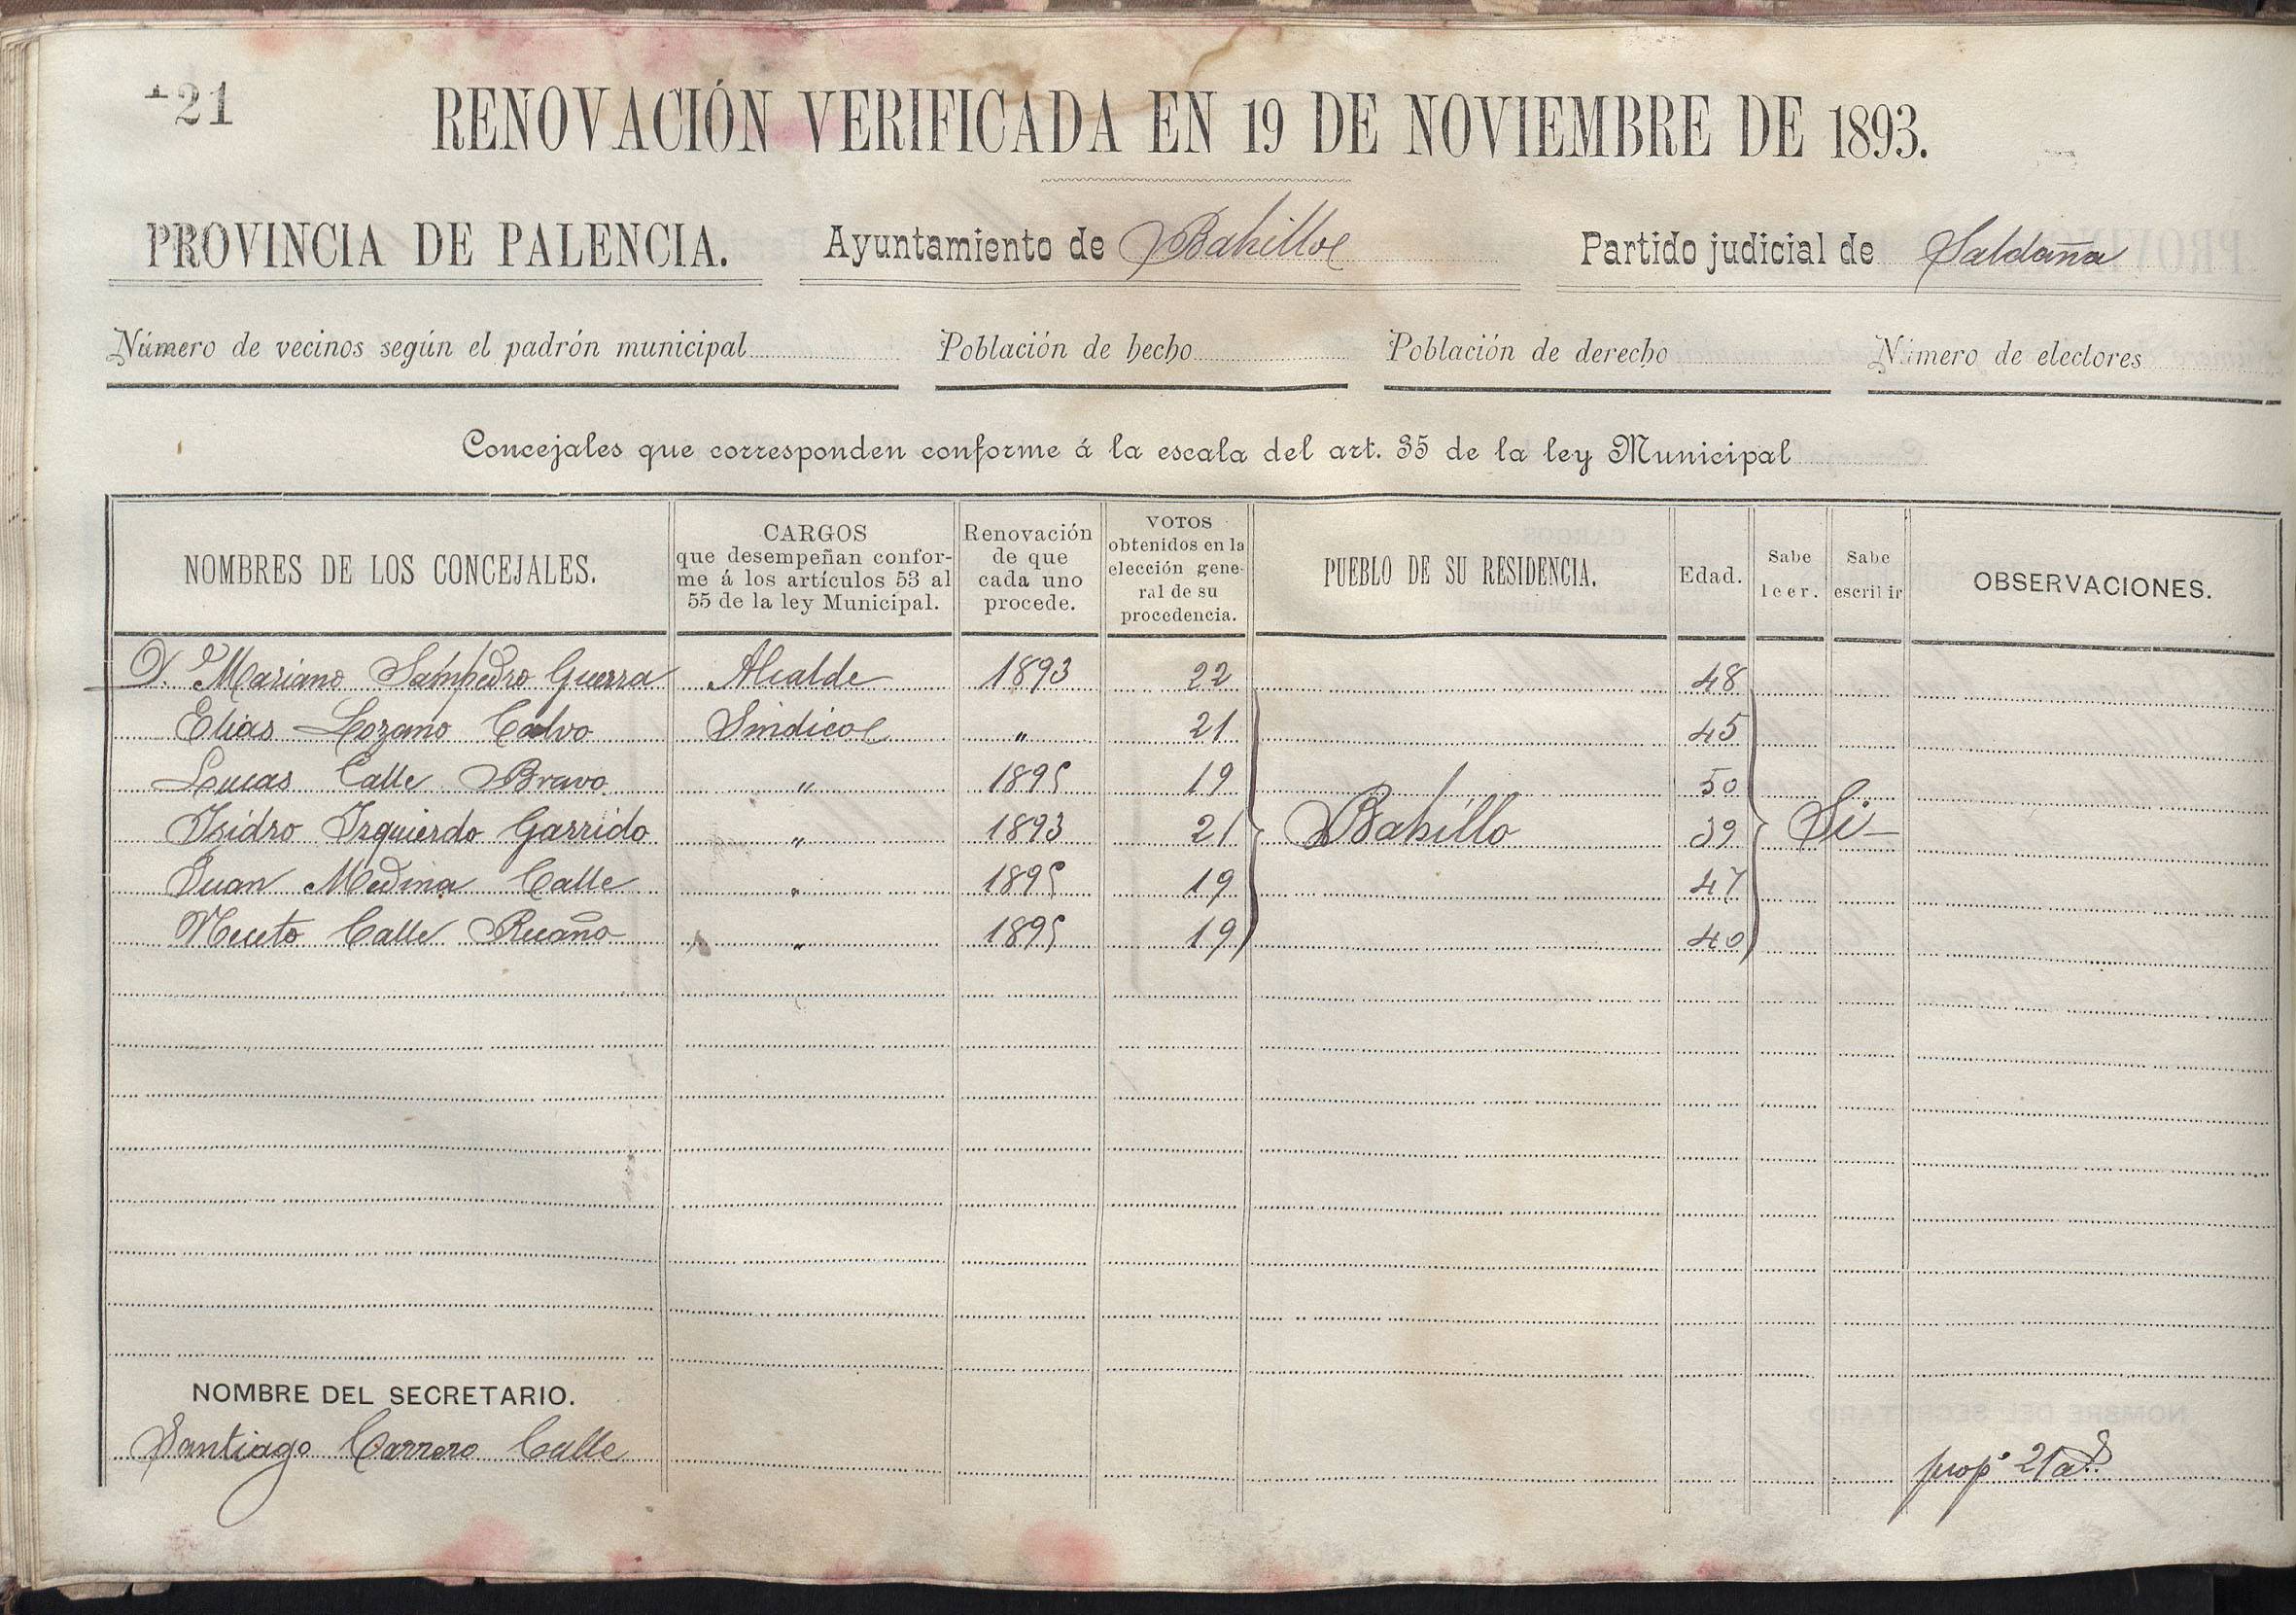 21
RENOVACIÓN VERIFICADA EN 19 DE NOVIEMBRE DE 1893.
PROVINCIA DE PALENCIA. Ayuntamiento de Bahillo Partido judicial de Saldaña
Número de vecinos según el padrón municipal Población de hecho Población de derecho Número de electores
Concejales que corresponden conforme á la escala del art. 35 de la ley Municipal
NOMBRES DE LOS CONCEJALES.
CARGOS
que desempeñan confor-
me á los artículos 53 al
55 de la ley Municipal.
Renovación
de que
cada uno
procede.
VOTOS
obtenidos en la
elección gene-
ral de su
procedencia.
PUEBLO DE SU RESIDENCIA.
Edad.
Sabe
leer.
Sabe
escribir
OBSERVACIONES.
D. Mariano Sampedro Guerra Alcalde 1893 22 48
Elias Lozano Calvo Sindico " 21 45
Lucas Calle Bravo " 1895 19 50
Isidro Izquierdo Garrido " 1893 21 Bahillo 39 Si
Juan Medina Calle " 1895 19 47
Niceto Calle Recaño " 1895 19 40
NOMBRE DEL SECRETARIO.
Santiago Carrero Calle